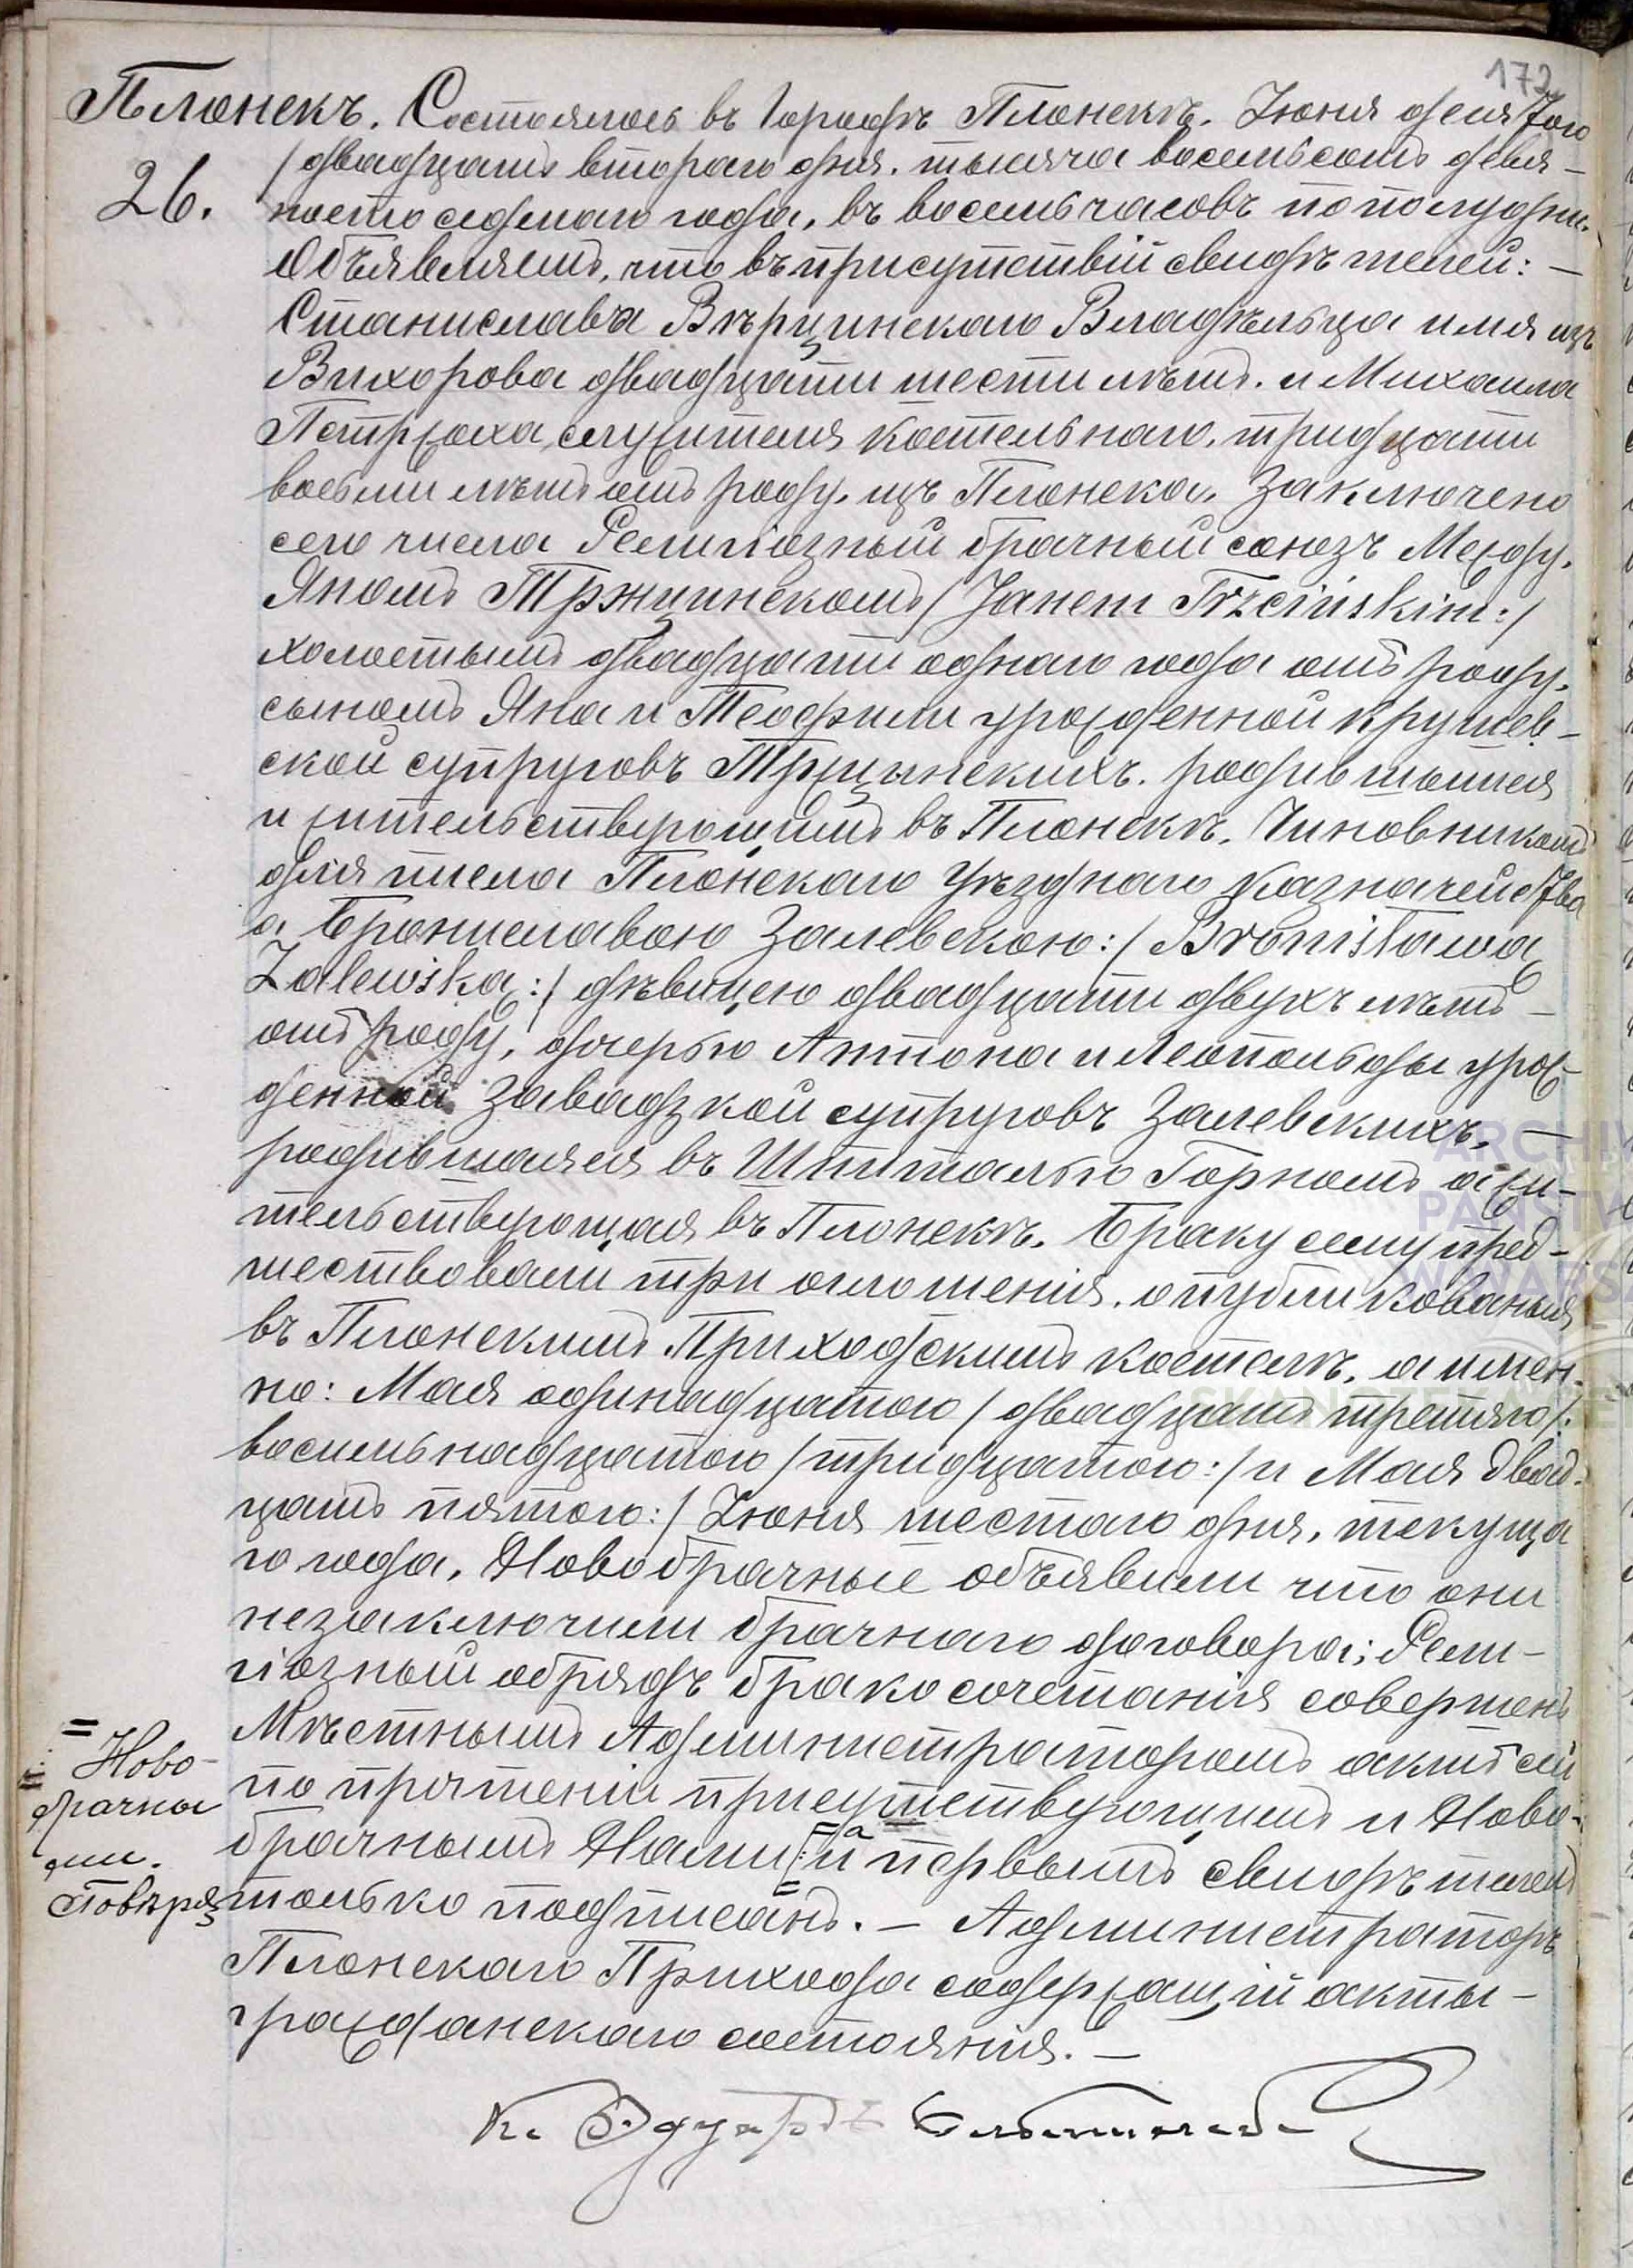 172
Плонскъ. Состоялось въ Городѣ Плонскѣ. Іюня десятого
26. / двадцать втораго дня. тысяча восемьсотъ девя-
носто седмаго года, въ восемь часовъ по полудни.
Объявляемъ, что въ присутствіи свидѣтелей: —
Станислава Вѣрцинскаго Владѣльца имѣ изъ
Вихорова двадцати шести лѣтъ. и Михаила
служителя костельнаго, тридцати
восьми лѣтъ отъ роду, изъ Плонска. Заключено
сего числа Религіозный брачный союзъ Между.
Яномъ Тржцинскомъ / Janem Trzcińskim :/
холостымъ двадцати однаго года отъ роду,
сыномъ Яна и Теофили урожденной Крушев-
ской супруговъ Тржцинскихъ. родившымся
и жительствующимъ въ Плонскѣ, Чиновникомъ
для писма Плонскаго Уѣзднаго Казначейства
а Брониславою Залевскою :/ Bronisławą
Zalewską :/ дѣвицею двадцати двухъ лѣтъ —
отъ роду, дочерью Антона и Леопольды урож-
денной Завадзкой супруговъ Залевскихъ, —
родившаяся въ Шпиталью Горномъ а жи-
тельствующая въ Плонскѣ. Браку сему пред-
шествовали три оглошенія, опубликованыя
въ Плонскимъ Приходскимъ костелѣ, а имен-
но: Мая одинадцатого / двадцать третяго /:
восемьнадцатого / тридцатого :/ и Мая двад-
цать пятого :/ Іюня шестаго дня, текуща
го года, Новобрачные объявили что они
незаключили брачнаго договора; Рели-
гіозный обрядъ бракосочетанія совершенъ
Мѣстнымъ Администраторомъ актъ сей
по прочтеніи присутствующимъ и Ново-
брачнымъ Нами и первымъ свидѣтелемъ
только подписанъ. — Администраторъ
Плонскаго Прихода содержащій акты —
гражданскаго состоянія. —
= Ново-
брачны
ми.
К. Эдуардъ
ARCHIW
PAŃSTW
W WARSZA